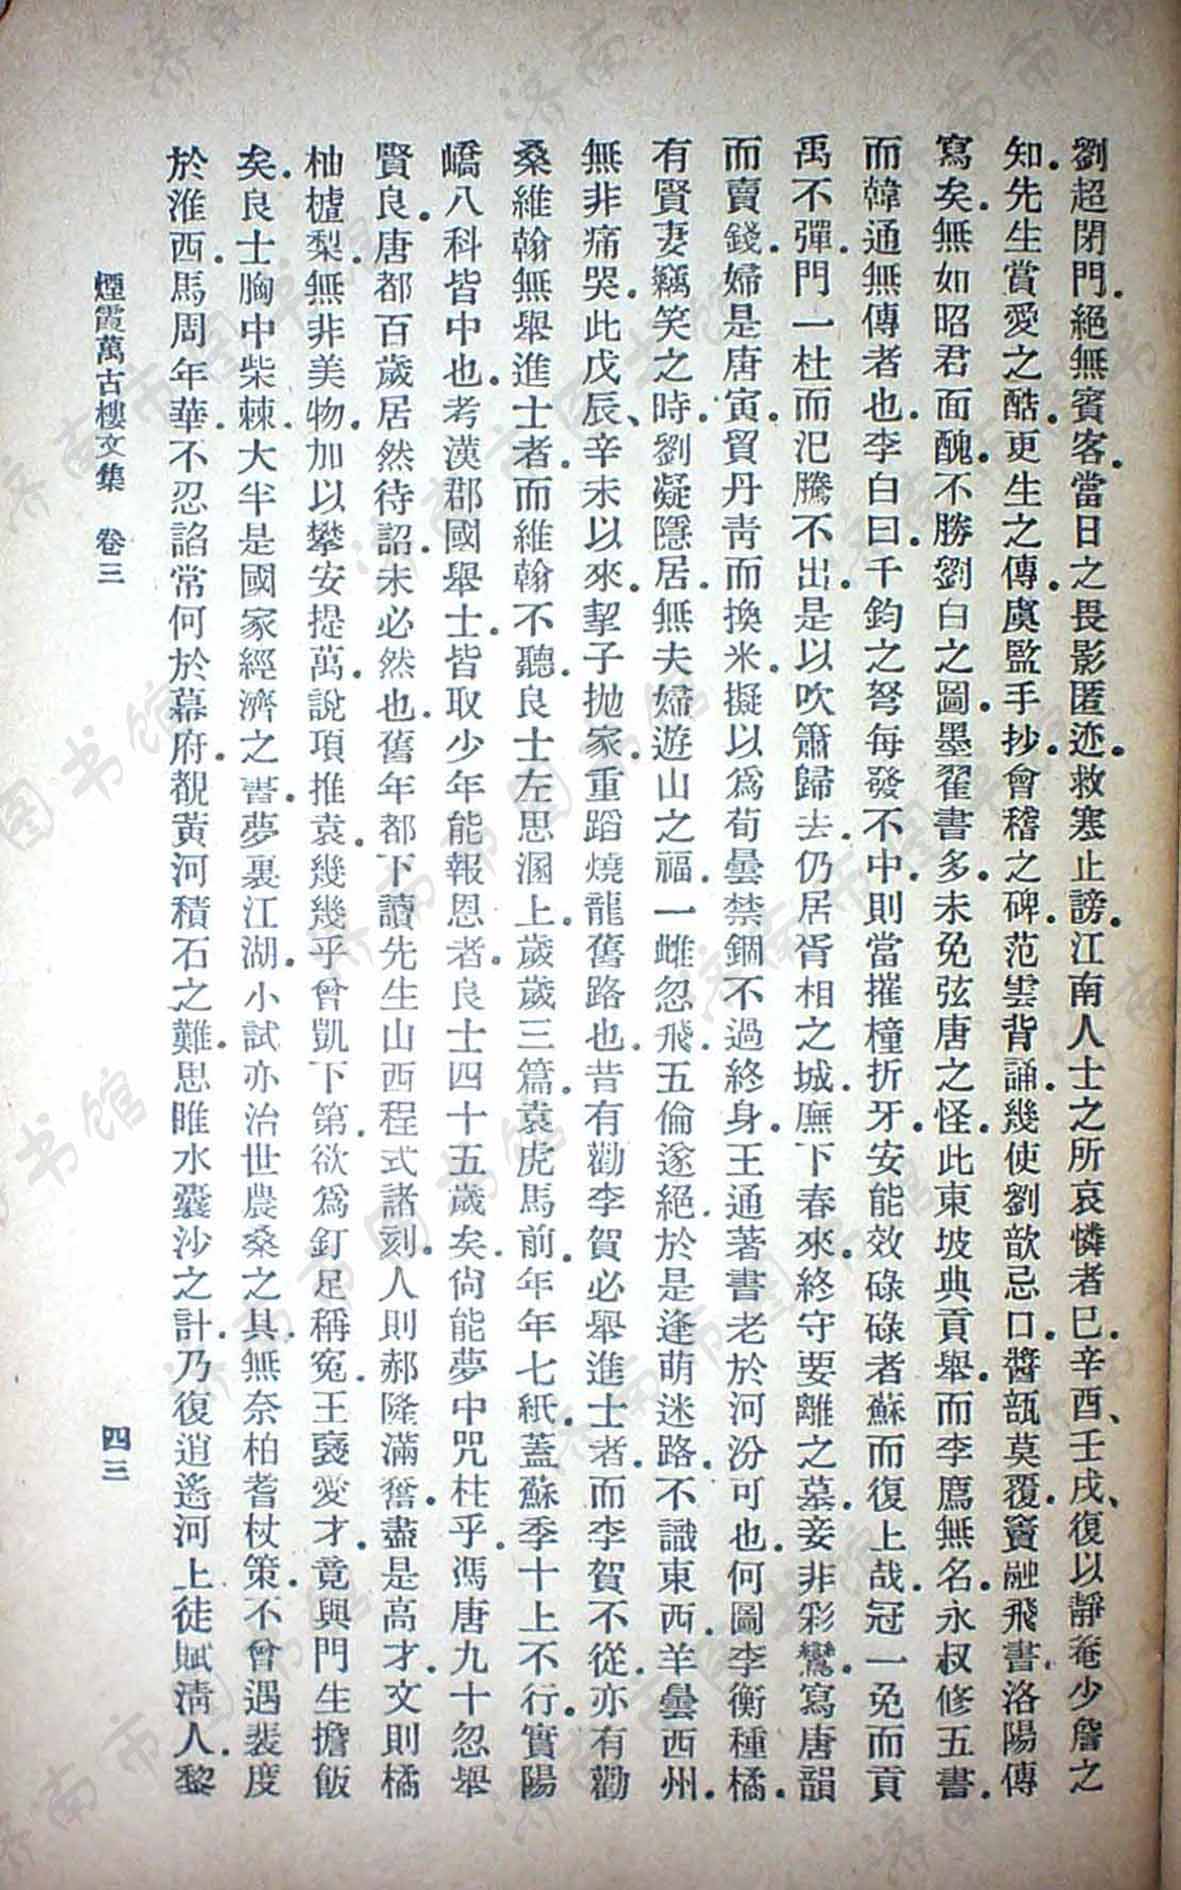 劉超閉門．絕無賓客．當日之畏影匿迹．救寒止謗．江南人士之所哀憐者巳．辛酉、壬戌、復以靜菴少詹之
知．先生賞愛之酷．更生之傳．虞監手抄．會稽之碑．范雲背誦．幾使劉歆忌口．醬瓿莫覆．竇融飛書．洛陽傳
寫矣．無如昭君面醜．不勝劉白之圖．墨翟書多．未免弦唐之怪．此東坡典貢舉．而李廌無名．永叔修五書．
而韓通無傳者也．李白曰．千鈞之弩．每發不中．則當摧橦折牙．安能效碌碌者蘇而復上哉．冠一免而貢
禹不彈．門一杜而氾騰不出．是以吹簫歸去．仍居胥相之城．廡下舂來．終守要離之墓．妾非彩鸞．寫唐韻
而賣錢．婦是唐寅．貿丹靑而換米．擬以爲荀曇禁錮．不過終身．王通著書．老於河汾可也．何圖李衡種橘．
有賢妻竊笑之時．劉凝隱居．無夫婦遊山之福．一雌忽飛．五倫遂絕．於是逢萌迷路．不識東西．羊曇西州．
無非痛哭．此戊辰、辛未以來．挈子拋家．重蹈燒龍舊路也．昔有勸李賀必舉進士者．而李賀不從．亦有勸
桑維翰無舉進士者．而維翰不聽．良士左思溷上．歲歲三篇．袁虎馬前．年年七紙．蓋蘇季十上不行．實陽
嶠八科皆中也．考漢郡國舉士．皆取少年能報恩者．良士四十五歲矣．尙能夢中咒柱乎．馮唐九十．忽舉
賢良．唐都百歲．居然待詔．未必然也．舊年都下．讀先生山西程式諸刻．人則郝隆滿奮．盡是高才．文則橘
柚樝梨．無非美物．加以攀安提萬．說項推袁．幾幾乎曾凱下第．欲爲釘足稱寃．王襃愛才．竟與門生擔飯
矣．良士胸中柴棘．大半是國家經濟之書．夢裏江湖．小試亦治世農桑之具．無奈柏耆杖策．不曾遇裴度
於淮西．馬周年華．不忍諂常何於幕府．覩黃河積石之難．思睢水囊沙之計．乃復逍遙河上．徒賦淸人．黎
煙霞萬古樓文集　卷三
四三